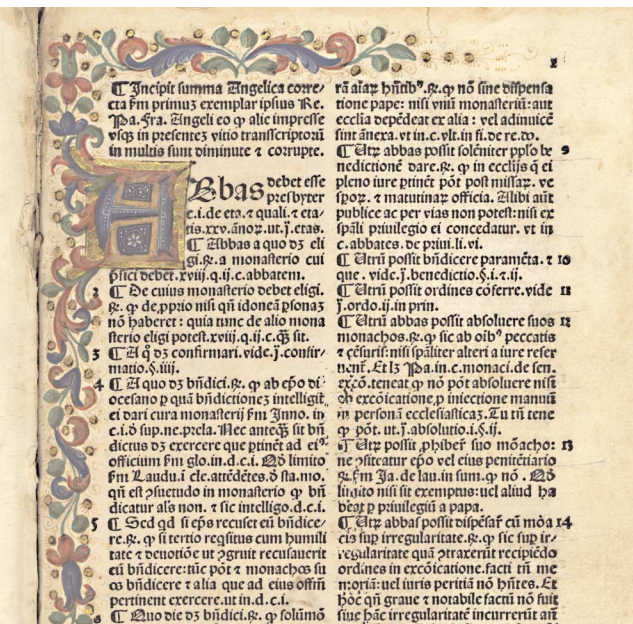 ¶ Incipit summa Angelica corre/
cta ẜm primuz exemplar ipsius Re.
Pa. Fra. Angeli eo ꝙ alie impresse
vsqꝫ in presentez vitio transcriptorũ
in multis sunt diminute ⁊ corrupte.
ABbas debet esse
presbyter
c.i. de eta. ⁊ quali. ⁊ eta-
tis .xxv. ãnoꝝ. ut. j. etas.
¶ Abbas a quo dꝫ eli
gi. ℞. a monasterio cui
p̃fici debet. xviij. q. ij. c. abbatem.
2 ¶ De cuius monasterio debet eligi.
℞. ꝙ de ,pprio nisi qñ idoneã ꝑsonaꝫ
nõ haberet : quia tunc de alio mona
sterio eligi potest. xviij. q. ij. c. q̃ꝫ sit.
3 ¶ A q̊ dꝫ confirmari. vide. j. confir-
matio. §. iiij.
4 ¶ A quo dꝫ bñdici. ℞. ꝙ ab ep̃o di
ocesano ꝑ quã bñdictionez intelligit̃
ei dari cura monasterij ẜm Inno. in
c. i. õ sup. ne. prela. Nec anteq̃ꝫ sit bñ
dictus dꝫ exercere que ꝑtinẽt ad ei⁹
officium ẜm glo. in. d. c. i. Qõ limito
ẜm Laudu. i cle. attẽdẽtes. õ sta. mo.
qñ est ꝯsuetudo in monasterio ꝙ bñ
dicatur als non. ⁊ sic intelligo. d. c. i.
5 ¶ Sed qd si ep̃s recuset eũ bñdice/
re. ℞. ꝙ si tertio reqsitus cum humili
tate ⁊ deuotiõe ut ꝯgruit recusauerit
eũ bñdicere: tũc põt ⁊ monachos su
os bñdicere ⁊ alia que ad eius offm̃
pertinent exercere. ut in. d. c. i.
6 ¶ Quo die dꝫ bñdici. ℞. ꝙ solũmõ
rã aĩaꝝ hñtib⁹. ℞. ꝙ nõ sine dispensa
tione pape: nisi vniũ monasteriũ: aut
ecclia depẽdeat ex alia : vel adinuicẽ
sint ãnexa. vt in. c. vlt. in fi. de re. do.
¶ Utꝝ abbas possit solẽniter pplo be 9
nedictionẽ dare. ℞. ꝙ in ecclijs q̃ ei
pleno iure ꝑtinẽt põt post missaꝝ. ve
spoꝝ. ⁊ matutinaꝝ officia. Alibi aũt
publice ac per vias non potest: nisi ex
sp̃ali priuilegio ei concedatur. vt in
c. abbates. de priui. li. vi.
¶ Utrũ possit bñdicere paramẽta. ⁊ 10
que . vide. j. benedictio. §. i. ⁊ ij.
¶ Utrũ possit ordines cõferre. vide 11
j. ordo. ij. in prin.
¶ Utrũ abbas possit absoluere suos 12
monachos. ℞. ꝙ sic ab oĩb⁹ peccatis
⁊ cẽsuris: nisi sp̃aliter alteri a iure reser
uent̃. Et lꝫ Pa. in. c. monaci. de sen.
excõ. teneat ꝙ nõ põt absoluere nisi
ob excõicatione, ꝓ iniectione manuũ
in personã ecclesiasticaꝫ. Tu tñ tene
ꝙ põt. ut. j. absolutio. i. §. ij.
¶ Utꝝ possit ꝓhibet̃ suo mõacho: 13
ne ꝯfiteatur ep̃o vel eius penitẽtiario
℞. ẜm Ja. de lau. in sum. q̃ nõ . Qõ
limito nisi sit exemptus: uel aliud ha
beat̃ ꝑ priuilegiũ a papa.
¶ Utꝝ abbas possit dispẽsar̃ cũ mõa 14
cis suꝑ irregularitate. ℞. ꝙ sic suꝑ ir/
regularitate quã ꝯtraxerũt recipiẽdo
ordines in excõicatione. facti tñ me
moriã: uel iuris peritiã nõ hñtes. Et
hõc qñ graue ⁊ notabile factũ nõ fuit
siue hãc irregularitatẽ incurrerũt añ